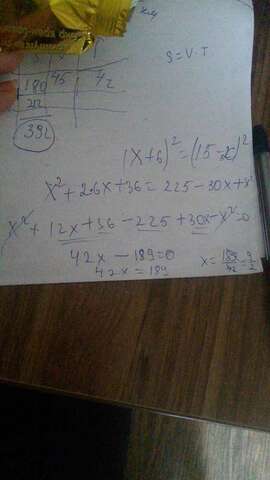 S = V · T
180 45 42
212
392
(x+6)² = (15-x)²
x² + 2·6x + 36 = 225 - 30x + x²
x² + 12x + 36 - 225 + 30x - x² = 0
42x - 189 = 0
42x = 189
x = 189/42 = 9/2